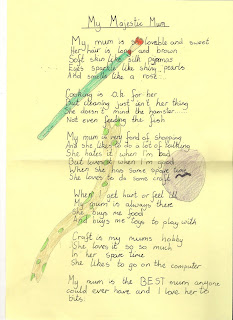 My Majestic Mum
My mum is so lovable and sweet
Her hair is long and brown
Soft skin like silk pyjamas
Eyes sparkle like shiny pearls
And smells like a rose...
Cooking is o.k for her
But cleaning just isn't her thing
She doesn't mind the hamster...
Not even feeding the fish
My mum is very fond of shopping
And she likes to do a lot of talking
She hates it when I'm bad
But loves it when I'm good
When she has some spare time
She loves to do some craft
When I get hurt or feel ill
My mum is always there
She buys me food
And buys me toys to play with
Craft is my mums hobby
She loves it so so much
In her spare time
She likes to go on the computer
My mum is the BEST mum anyone
could ever have and I love her to
bits.